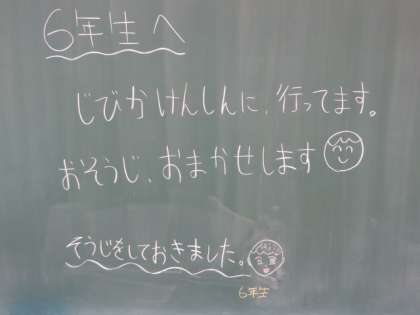 6年生へ
じびかけんしんに、行ってます。
おそうじ、おまかせします
そうじをしておきました。
6年生